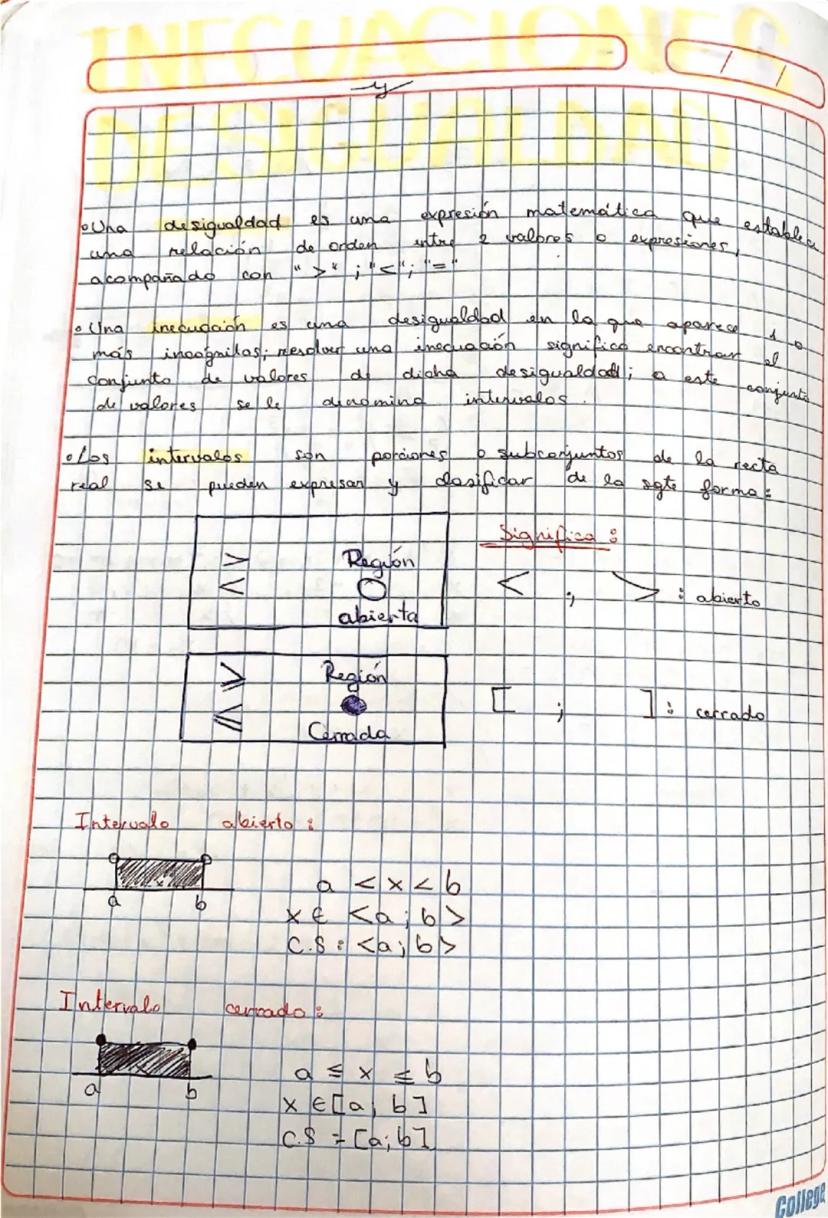 INECUACIONES
y
DESIGUALDAD
/ /
• Una desigualdad es una expresión matemática que establece
una relación de orden entre 2 valores o expresiones,
acompañado con ">" ; "<" ; "="
• Una inecuación es una desigualdad en la que aparece 1 o
más incógnitas; resolver una inecuación significa encontrar el
conjunto de valores de dicha desigualdad; a este conjunto
de valores se le denomina intervalos.
• Los intervalos son porciones o subconjuntos de la recta
real se pueden expresar y clasificar de la sgte forma:
Significa:
> Región
< abierta
< ; > : abierto
≥ Región
≤ Cerrada
[ ; ] : cerrado
Intervalo abierto:
a b
a < x < b
x ∈ <a; b>
C.S : <a; b>
Intervalo cerrado:
a b
a ≤ x ≤ b
x ∈ [a; b]
C.S = [a; b]
College